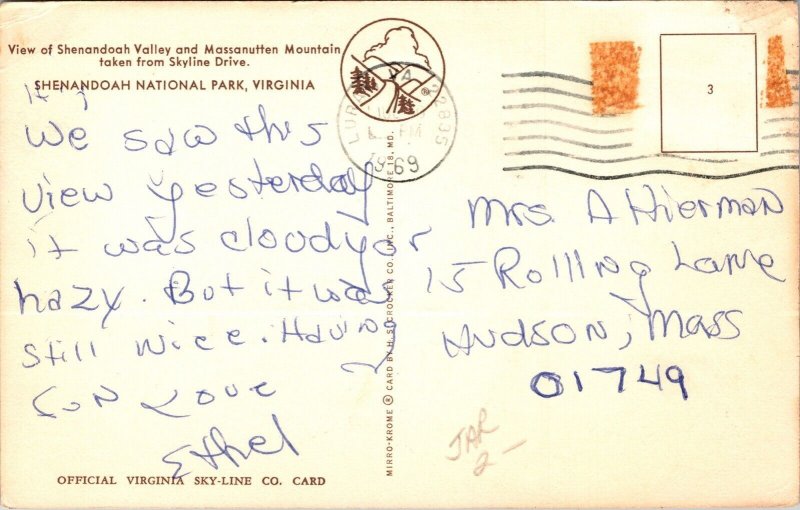 View of Shenandoah Valley and Massanutten Mountain
taken from Skyline Drive.
SHENANDOAH NATIONAL PARK, VIRGINIA
We saw this
view yesterday
it was cloudy or
hazy. But it was
still nice. Having
fun Love
Ethel
OFFICIAL VIRGINIA SKY-LINE CO. CARD
MIRRO-KROME ® CARD BY H. S. CROCKER CO., INC., BALTIMORE 18, MD.
VA
22835
PM
1969
®
3
Mrs. A Hierman
15 Rolling Lane
Hudson, Mass
01749
JAR
2-